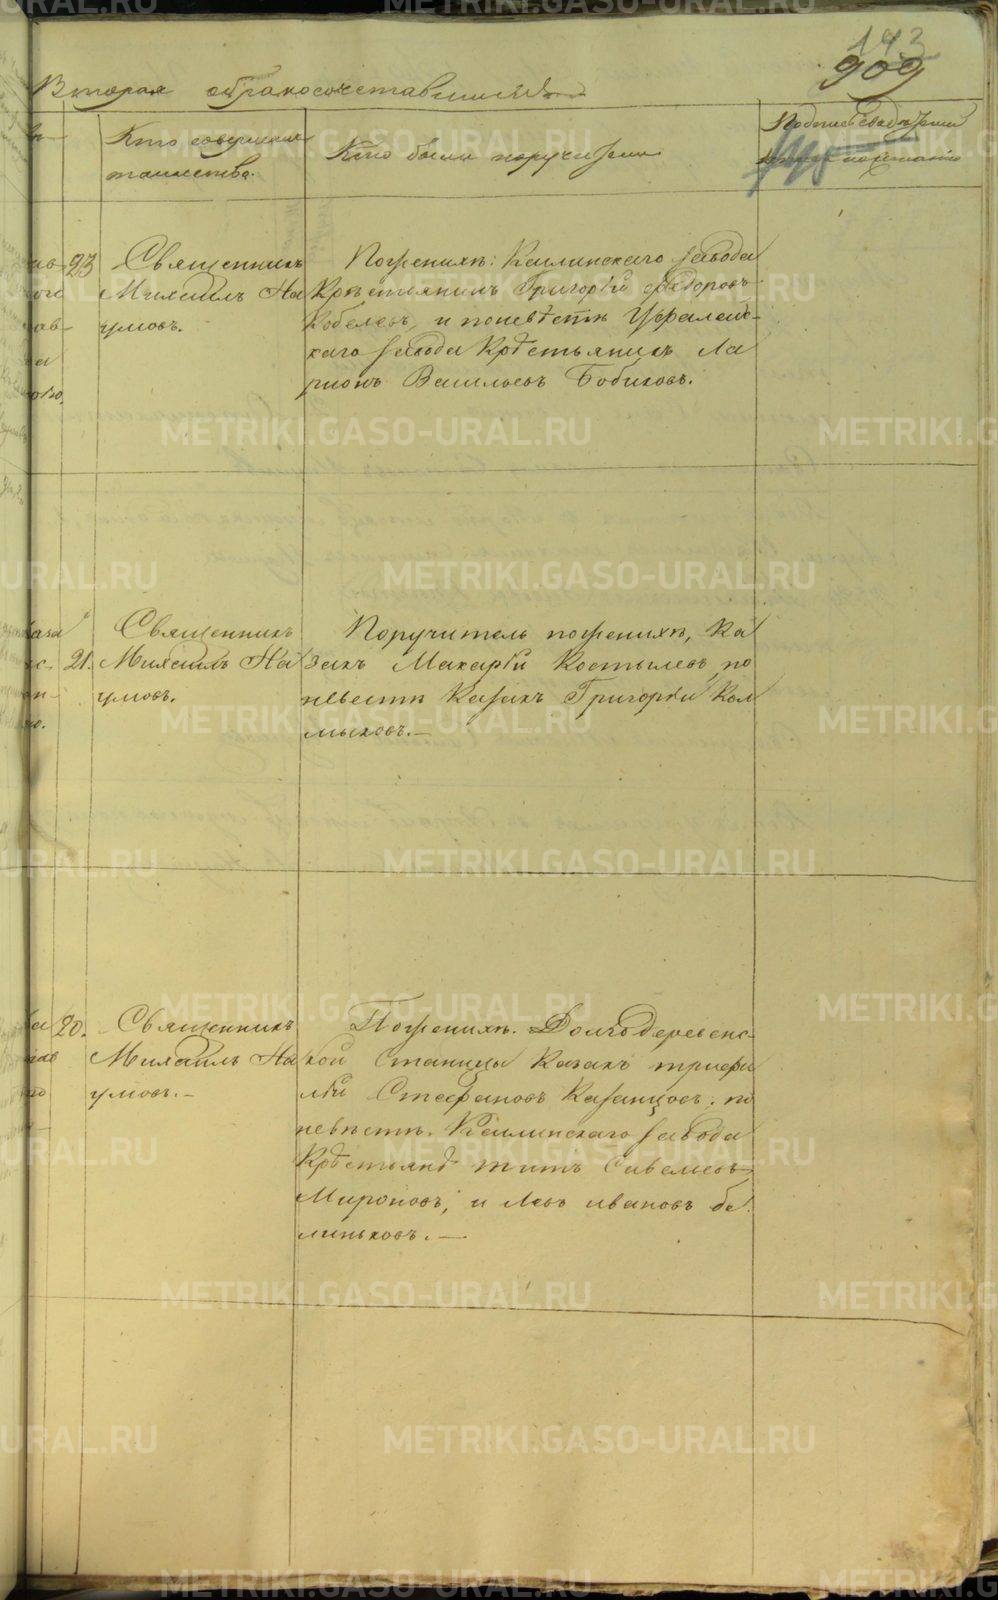 143
909
Вторая обракосочетавшихся
Кто совершилъ таинство.
Кто были поручители
Подпись свидѣтелей
23
Священникъ
Михаилъ На
умовъ.
Поженихѣ: Каслинскаго завода
Крестьянинъ Григорій Ѳедоровъ
Кобелевъ, и поневѣстѣ Уфалейс-
каго завода Крестьянинъ Ла
ріонъ Васильевъ Бобиковъ.
21.
Священникъ
Михаилъ На
умовъ.
Поручитель поженихѣ, Ка
закъ Макарій Костылевъ, по
невѣстѣ Казакъ Григорій Кал
мыковъ.—
20.
Священникъ
Михаилъ На
умовъ.—
Поженихѣ. Долгодеревенс-
кой Станицы Казакъ
Стефановъ Казанцовъ; по
невѣстѣ. Каслинскаго завода
Крестьяне Титъ Савельевъ
Мироновъ, и Левъ Ивановъ бе
линьковъ.—
METRIKI.GASO-URAL.RU